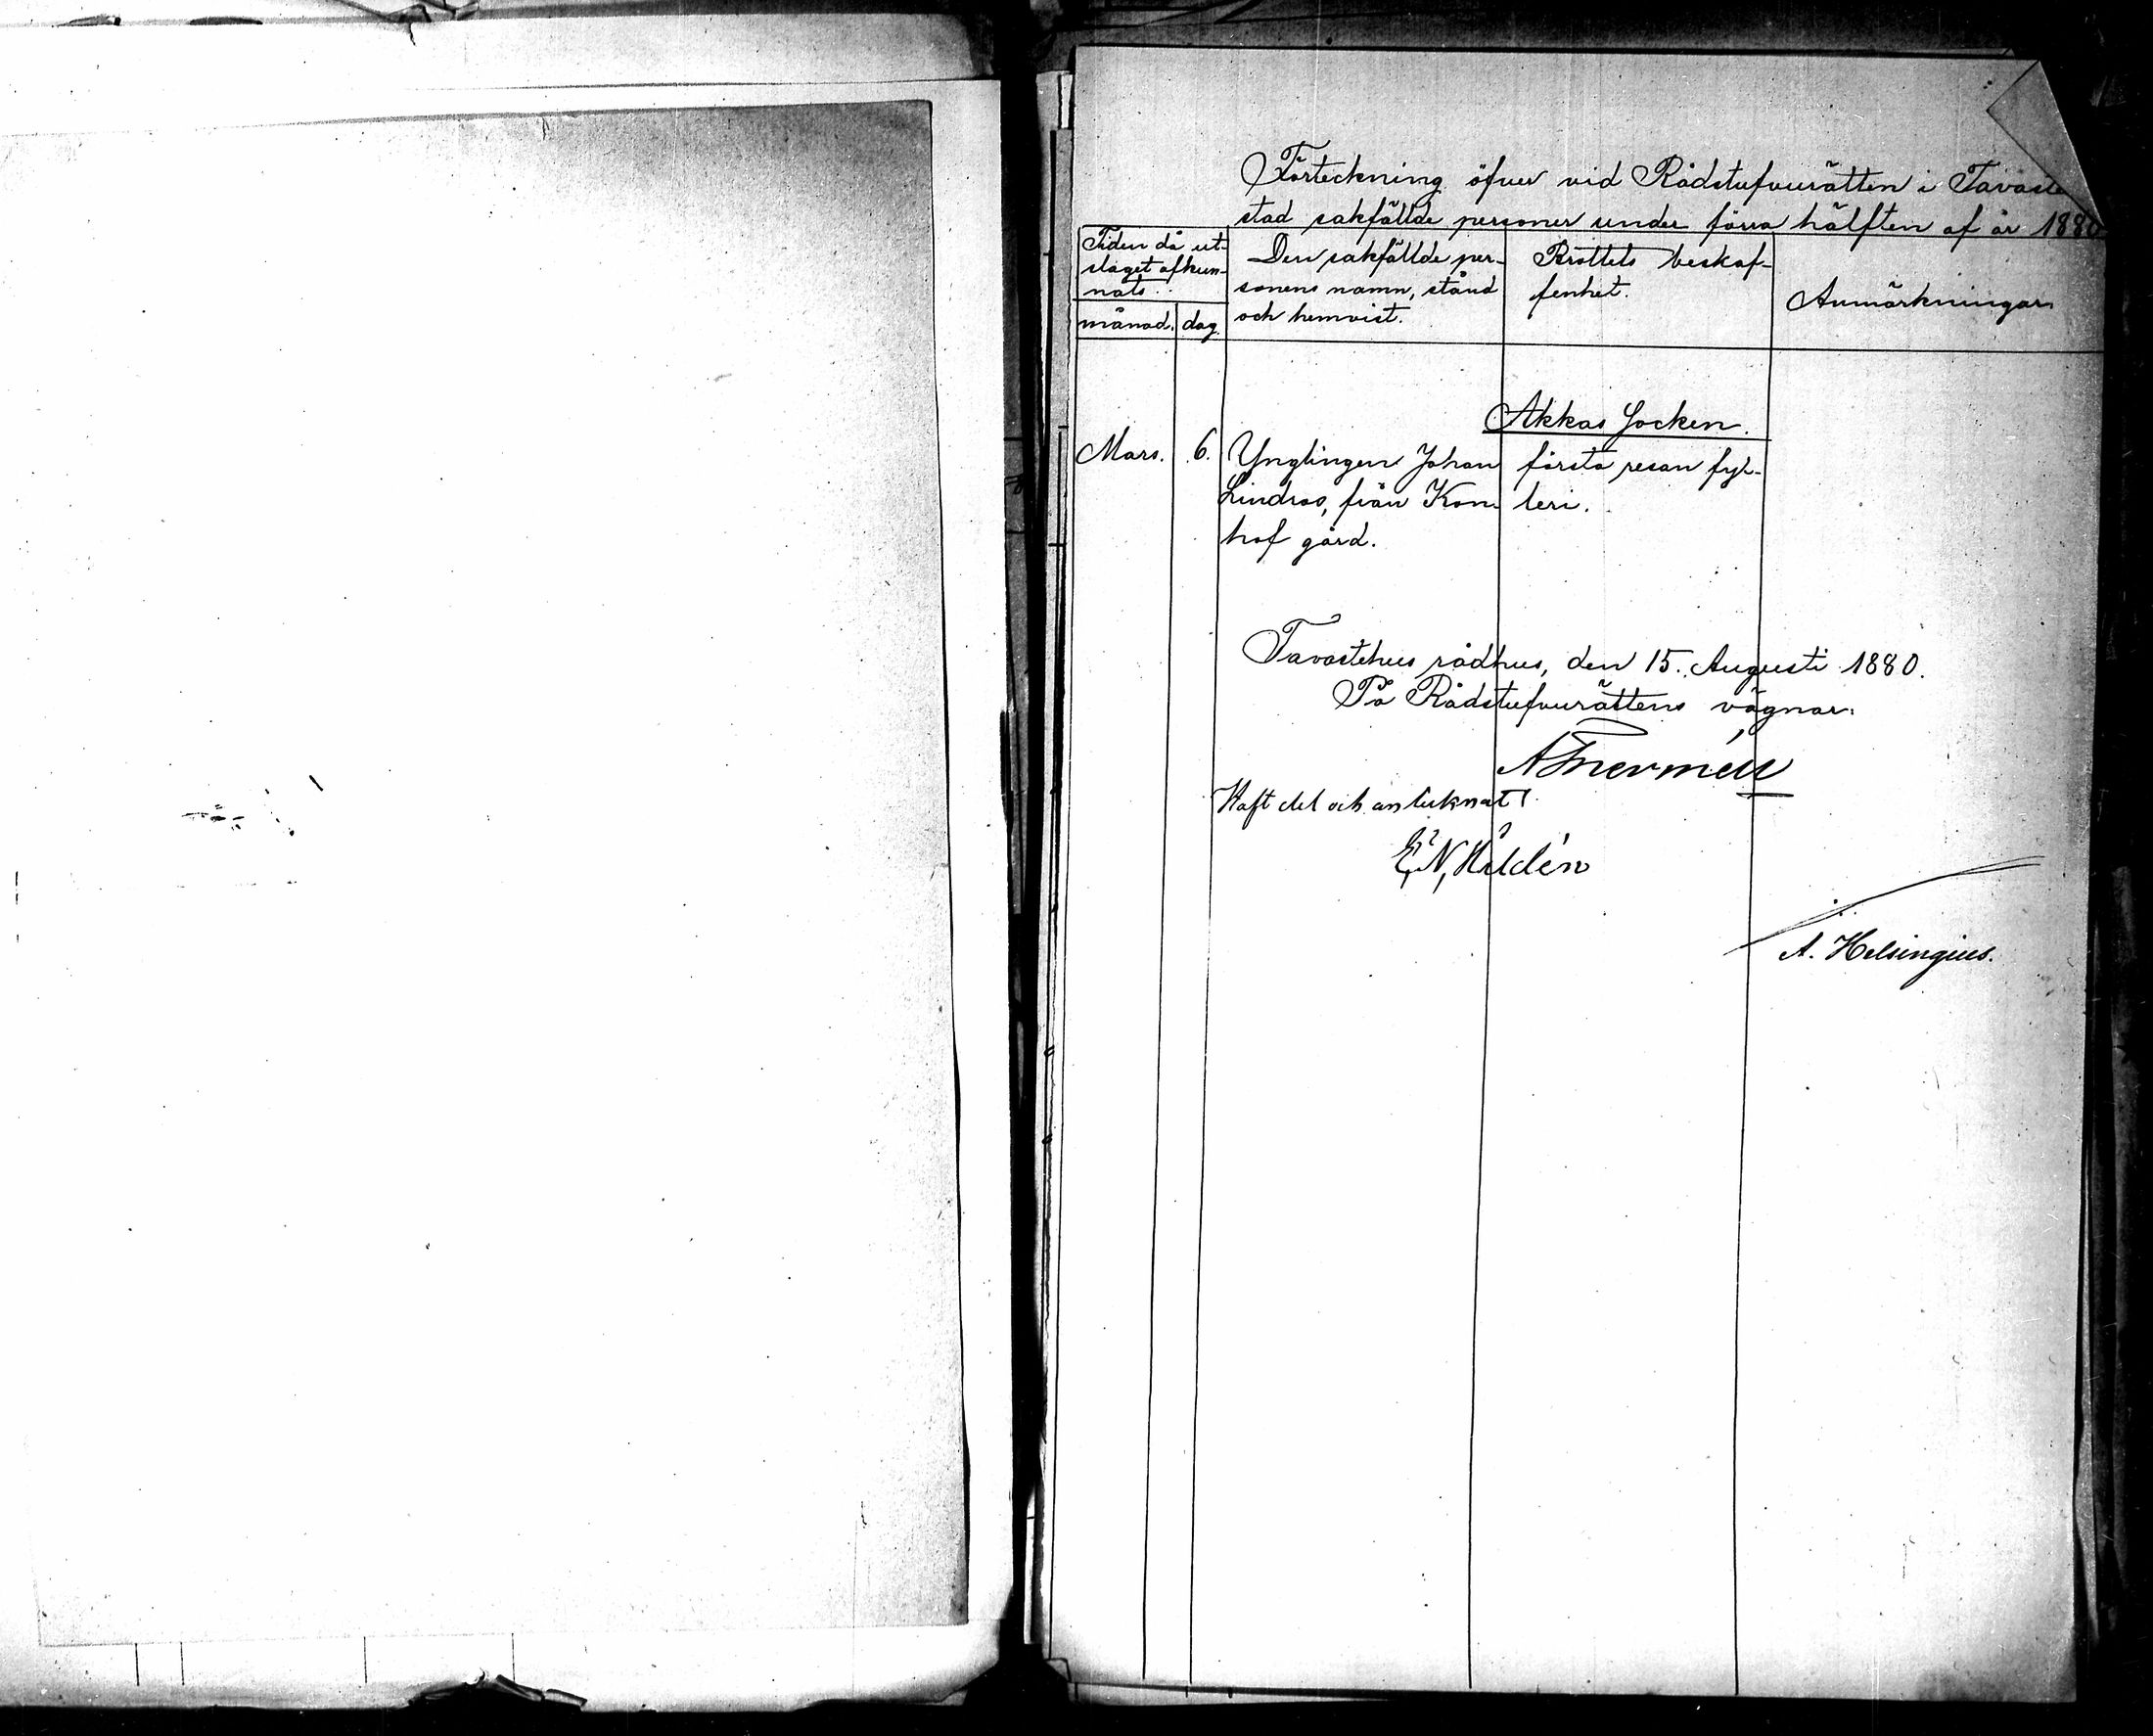 Förteckning öfver vid Rådstufvurätten i Tavaste
stad sakfällde personer under förra hälften af år 1880
Tiden då ut-
slaget afkun-
nats.
månad. dag.
Den sakfällde per-
sonens namn, stånd
och hemvist.
Brottets beskaf-
fenhet.
Anmärkningar
Akkas Socken.
Mars. 6. Ynglingen Johan första resan fyl-
Lindros, från Kon- leri.
hof gård.
Tavastehus rådhus, den 15. Augusti 1880.
På Rådstufvurättens vägnar:
Haft del och anteknat
E. N. Hildén
A. Helsingius.